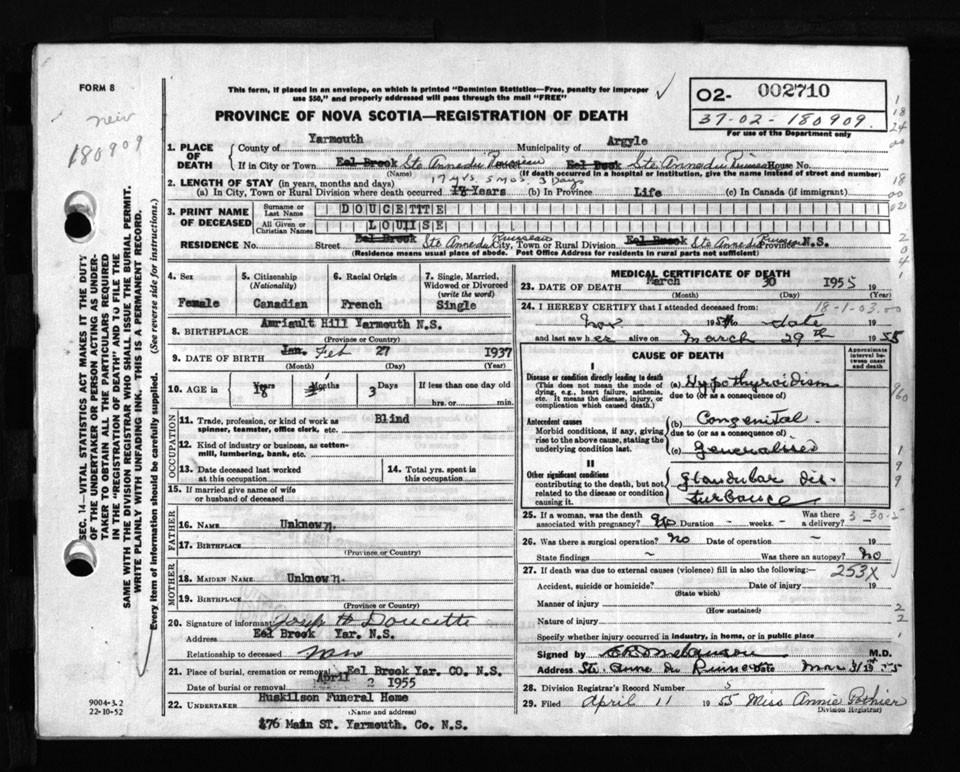 FORM 8
This form, if placed in an envelope, on which is printed "Dominion Statistics—Free, penalty for improper
use $50," and properly addressed will pass through the mail "FREE"
PROVINCE OF NOVA SCOTIA—REGISTRATION OF DEATH
O2- 002710
37-02-180909.
For use of the Department only
new
180909
SEC. 14—VITAL STATISTICS ACT MAKES IT THE DUTY
OF THE UNDERTAKER OR PERSON ACTING AS UNDER-
TAKER TO OBTAIN ALL THE PARTICULARS REQUIRED
IN THE "REGISTRATION OF DEATH" AND TO FILE THE
SAME WITH THE DIVISION REGISTRAR WHO SHALL ISSUE THE BURIAL PERMIT.
WRITE PLAINLY WITH UNFADING INK. THIS IS A PERMANENT RECORD.
Every item of information should be carefully supplied. (See reverse side for instructions.)
1. PLACE OF DEATH
County of Yarmouth Municipality of Argyle
If in City or Town Eel Brook Ste Anne du Ruisseau Eel Brook Ste Anne du Ruisseau House No.
(Name) (If death occurred in a hospital or institution, give the name instead of street and number)
2. LENGTH OF STAY (in years, months and days) 17 yrs 5 mos. 3 Days
(a) In City, Town or Rural Division where death occurred Years (b) In Province Life (c) In Canada (if immigrant)
3. PRINT NAME OF DECEASED
Surname or Last Name DOUCETTE
All Given or Christian Names LOUISE
RESIDENCE No. Street Eel Brook Ste Anne du Ruisseau City, Town or Rural Division Eel Brook Ste Anne du Ruisseau Province N.S.
(Residence means usual place of abode. Post Office Address for residents in rural parts not sufficient)
4. Sex
Female
5. Citizenship (Nationality)
Canadian
6. Racial Origin
French
7. Single, Married, Widowed or Divorced (write the word)
Single
8. BIRTHPLACE Amriault Hill Yarmouth N.S.
9. DATE OF BIRTH Jan. Feb 27 1937
(Month) (Day) (Year)
10. AGE in Years 18 Months Days 3 If less than one day old
hrs. or min.
OCCUPATION
11. Trade, profession, or kind of work as spinner, teamster, office clerk, etc. Blind
12. Kind of industry or business, as cotton-mill, lumbering, bank, etc.
13. Date deceased last worked at this occupation
14. Total yrs. spent in this occupation
15. If married give name of wife or husband of deceased
FATHER
16. NAME Unknown.
17. BIRTHPLACE
(Province or Country)
MOTHER
18. MAIDEN NAME Unknown.
19. BIRTHPLACE
(Province or Country)
20. Signature of informant Joseph H Doucette
Address Eel Brook Yar. N.S.
Relationship to deceased
21. Place of burial, cremation or removal Eel Brook Yar. CO. N.S.
Date of burial or removal April 2 1955
22. UNDERTAKER Huskilson Funeral Home
(Name and address)
276 Main ST. Yarmouth. Co. N.S.
9004-3.2
22-10-52
MEDICAL CERTIFICATE OF DEATH
23. DATE OF DEATH March 30 1955
(Month) (Day) (Year)
24. I HEREBY CERTIFY that I attended deceased from: 18-1-03.00
Nov 195 to date 19
and last saw her alive on March 29th 1955
CAUSE OF DEATH
Approximate interval between onset and death
I
Disease or condition directly leading to death (This does not mean the mode of dying, e.g., heart failure, asthenia, etc. It means the disease, injury, or complication which caused death.)
(a) Hypothyroidism
due to (or as a consequence of)
Antecedent causes
Morbid conditions, if any, giving rise to the above cause, stating the underlying condition last.
(b) Congenital
due to (or as a consequence of)
(c) Generalised
II
Other significant conditions contributing to the death, but not related to the disease or condition causing it.
glandular dis-
turbance
25. If a woman, was the death associated with pregnancy? No Duration - weeks. - Was there a delivery? 3-30-5
26. Was there a surgical operation? No Date of operation -
State findings ~ Was there an autopsy? No
27. If death was due to external causes (violence) fill in also the following:— 253X
Accident, suicide or homicide? Date of injury 19
(State which)
Manner of injury
(How sustained)
Nature of injury
Specify whether injury occurred in industry, in home, or in public place
Signed by M.D.
Address Ste. Anne du Ruisseau Date Mar 31st 55
28. Division Registrar's Record Number 5
29. Filed April 11 1955 Miss Annie Pothier
Division Registrar